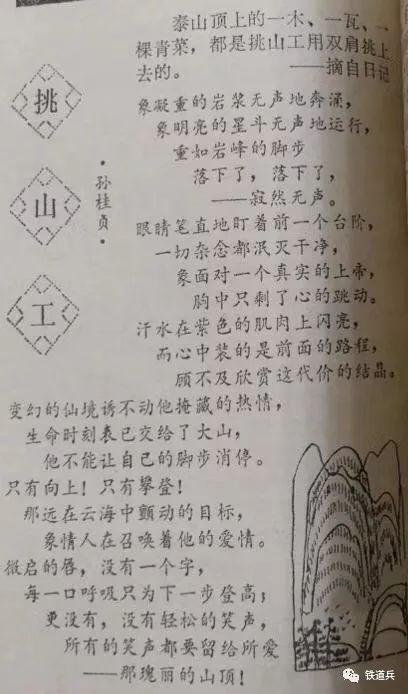 挑山工
·孙桂贞·
泰山顶上的一木、一瓦、一
棵青菜，都是挑山工用双肩挑上
去的。 ——摘自日记
象凝重的岩浆无声地奔涌，
象明亮的星斗无声地运行，
重如岩峰的脚步
落下了，落下了，
——寂然无声。
眼睛笔直地盯着前一个台阶，
一切杂念都泯灭干净，
象面对一个真实的上帝，
胸中只剩了心的跳动。
汗水在紫色的肌肉上闪亮，
而心中装的是前面的路程，
顾不及欣赏这代价的结晶。
变幻的仙境诱不动他掩藏的热情，
生命时刻表已交给了大山，
他不能让自己的脚步消停。
只有向上！只有攀登！
那远在云海中颤动的目标，
象情人在召唤着他的爱情。
微启的唇，没有一个字，
每一口呼吸只为下一步登高；
更没有，没有轻松的笑声，
所有的笑声都要留给所爱
——那瑰丽的山顶！
铁道兵